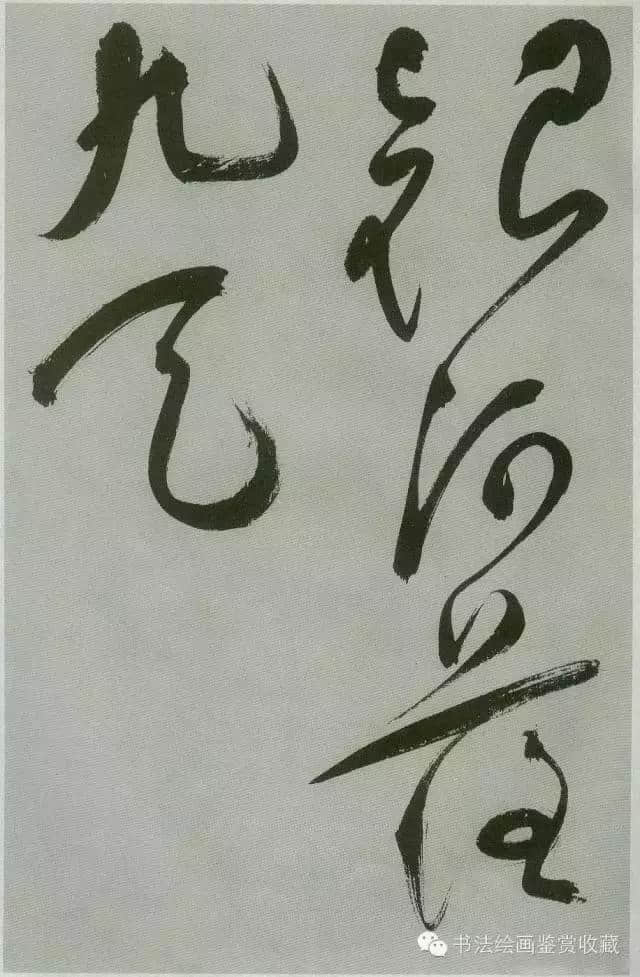 銀河落
九天
书法绘画鉴赏收藏